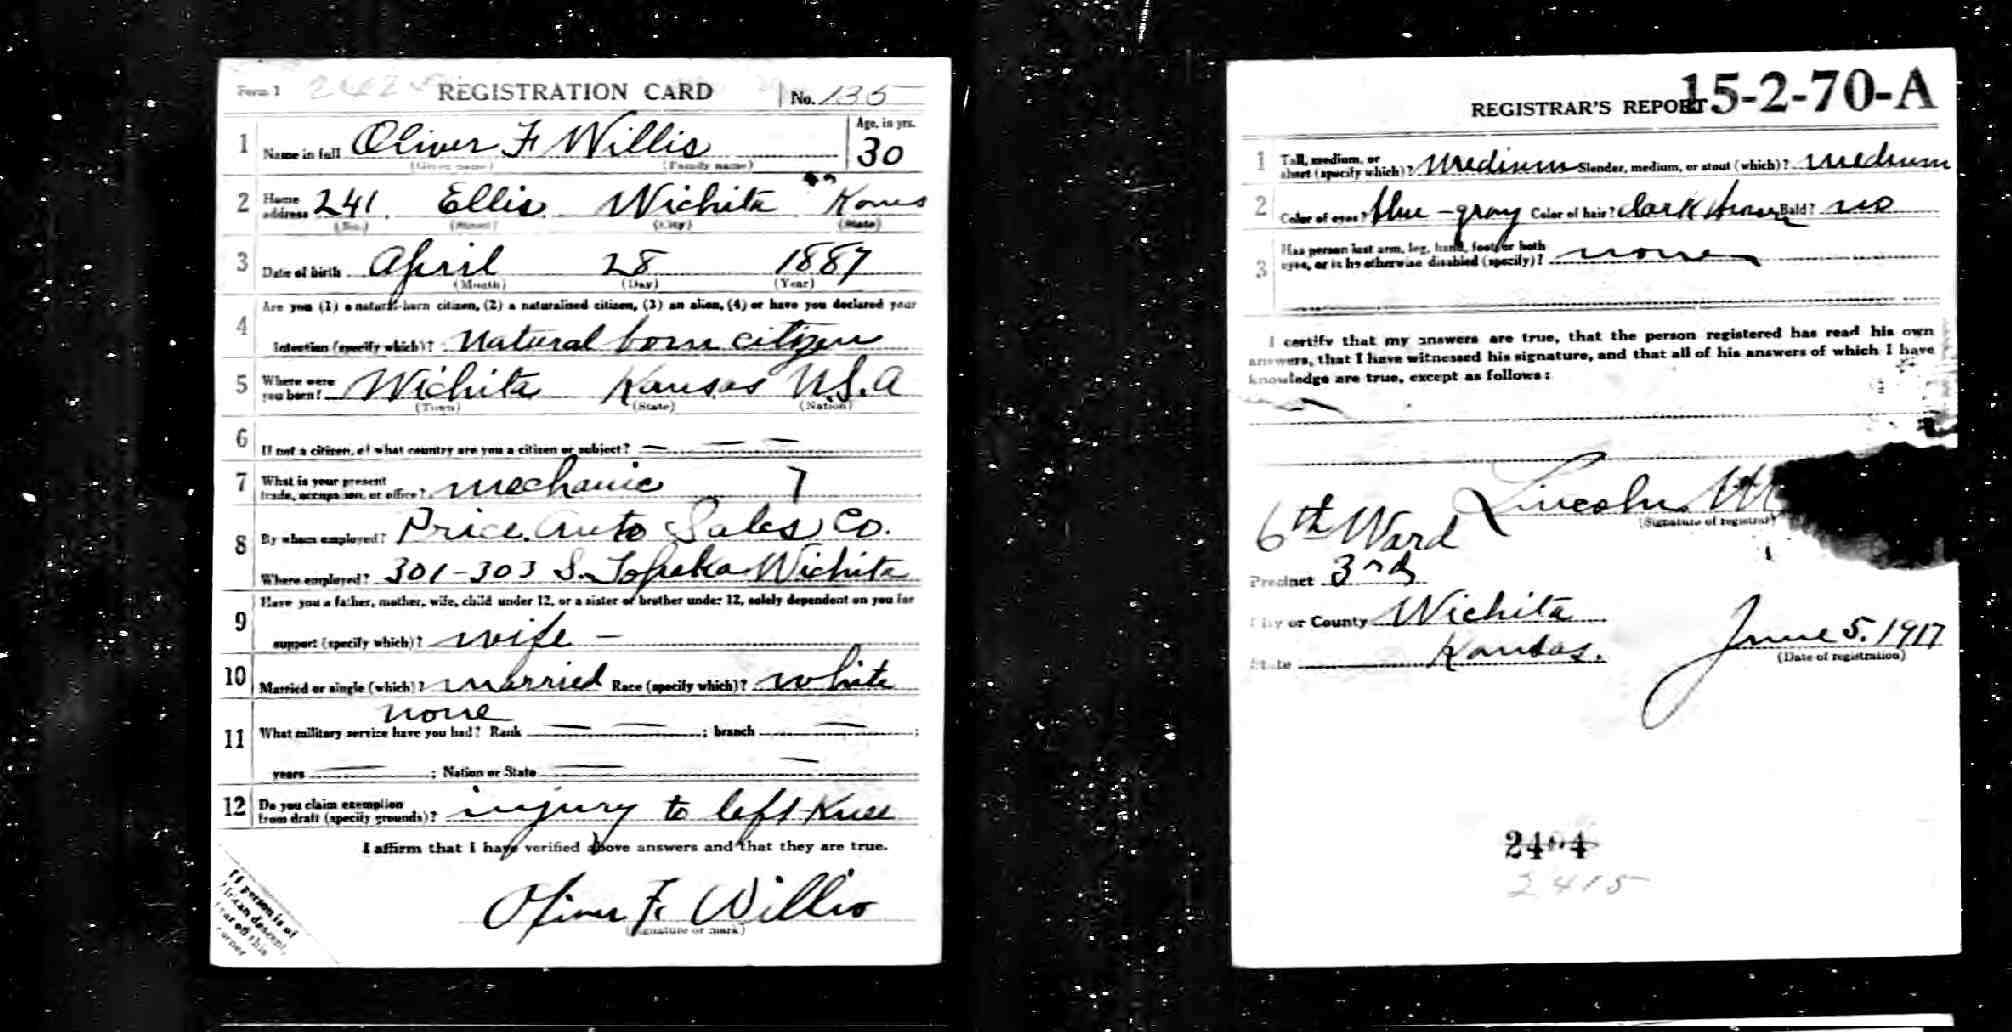 Form 1 REGISTRATION CARD No. 135
1 Name in full Oliver F Willis Age, in yrs. 30
(Given name) (Family name)
2 Home address 241 Ellis Wichita Kans
(No.) (Street) (City) (State)
3 Date of birth April 28 1887
(Month) (Day) (Year)
4 Are you (1) a natural-born citizen, (2) a naturalized citizen, (3) an alien, (4) or have you declared your
intention (specify which)? Natural born citizen
5 Where were you born? Wichita Kansas U.S.A
(Town) (State) (Nation)
6 If not a citizen, of what country are you a citizen or subject? — — —
7 What is your present trade, occupation, or office? mechanic 7
8 By whom employed? Price Auto Sales Co.
Where employed? 301-303 S. Topeka Wichita
9 Have you a father, mother, wife, child under 12, or a sister or brother under 12, solely dependent on you for
support (specify which)? wife —
10 Married or single (which)? married Race (specify which)? white
none
11 What military service have you had? Rank — — ; branch — ;
years — ; Nation or State — —
12 Do you claim exemption from draft (specify grounds)? injury to left Knee
I affirm that I have verified above answers and that they are true.
Oliver F. Willis
(Signature or mark)
If person is of
African descent,
tear off this
corner
15-2-70-A
REGISTRAR'S REPORT
1 Tall, medium, or short (specify which)? medium Slender, medium, or stout (which)? medium
2 Color of eyes? blue-gray Color of hair? dark brown Bald? no
3 Has person lost arm, leg, hand, foot, or both
eyes, or is he otherwise disabled (specify)? none
I certify that my answers are true, that the person registered has read his own
answers, that I have witnessed his signature, and that all of his answers of which I have
knowledge are true, except as follows:
Lincoln
(Signature of registrar)
6th Ward
Precinct 3rd
City or County Wichita
State Kansas.
June 5. 1917
(Date of registration)
2404
2415